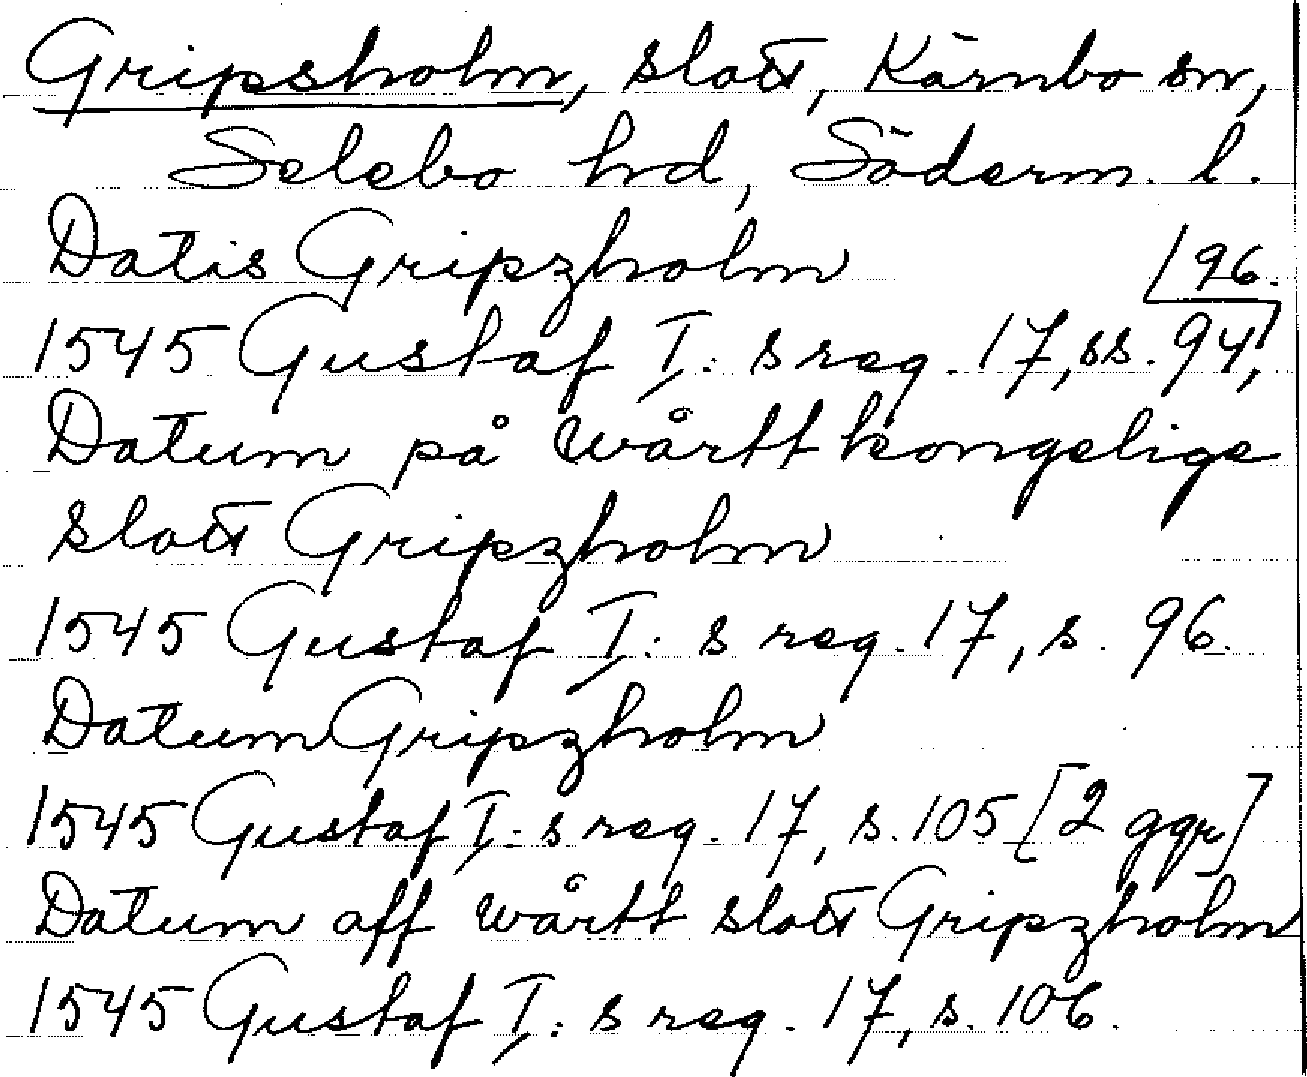 Gripsholm, slott, Kärnbo sn,
Selebo hd, Söderm. l.
Datis Gripzholm
1545 Gustaf I:s reg. 17, ss. 94, 96.
Datum på wårtt kongelige
slott Gripzholm
1545 Gustaf I:s reg. 17, s. 96.
Datum Gripzholm
1545 Gustaf I:s reg. 17, s. 105 [2 ggr]
Datum aff wårtt slott Gripzholm
1545 Gustaf I:s reg. 17, s. 106.